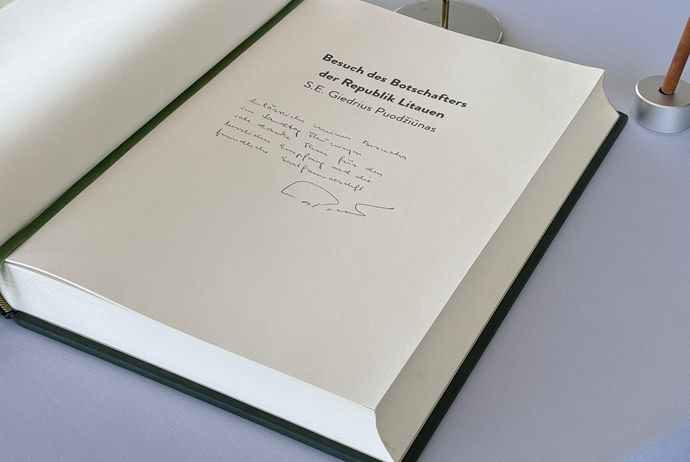 Besuch des Botschafters
der Republik Litauen
S.E. Giedrius Puodžiūnas
Anlässlich meines Besuchs
im Landtag Thüringen
ich danke Ihnen für den
herzlichen Empfang und die
freundliche Gastfreundschaft